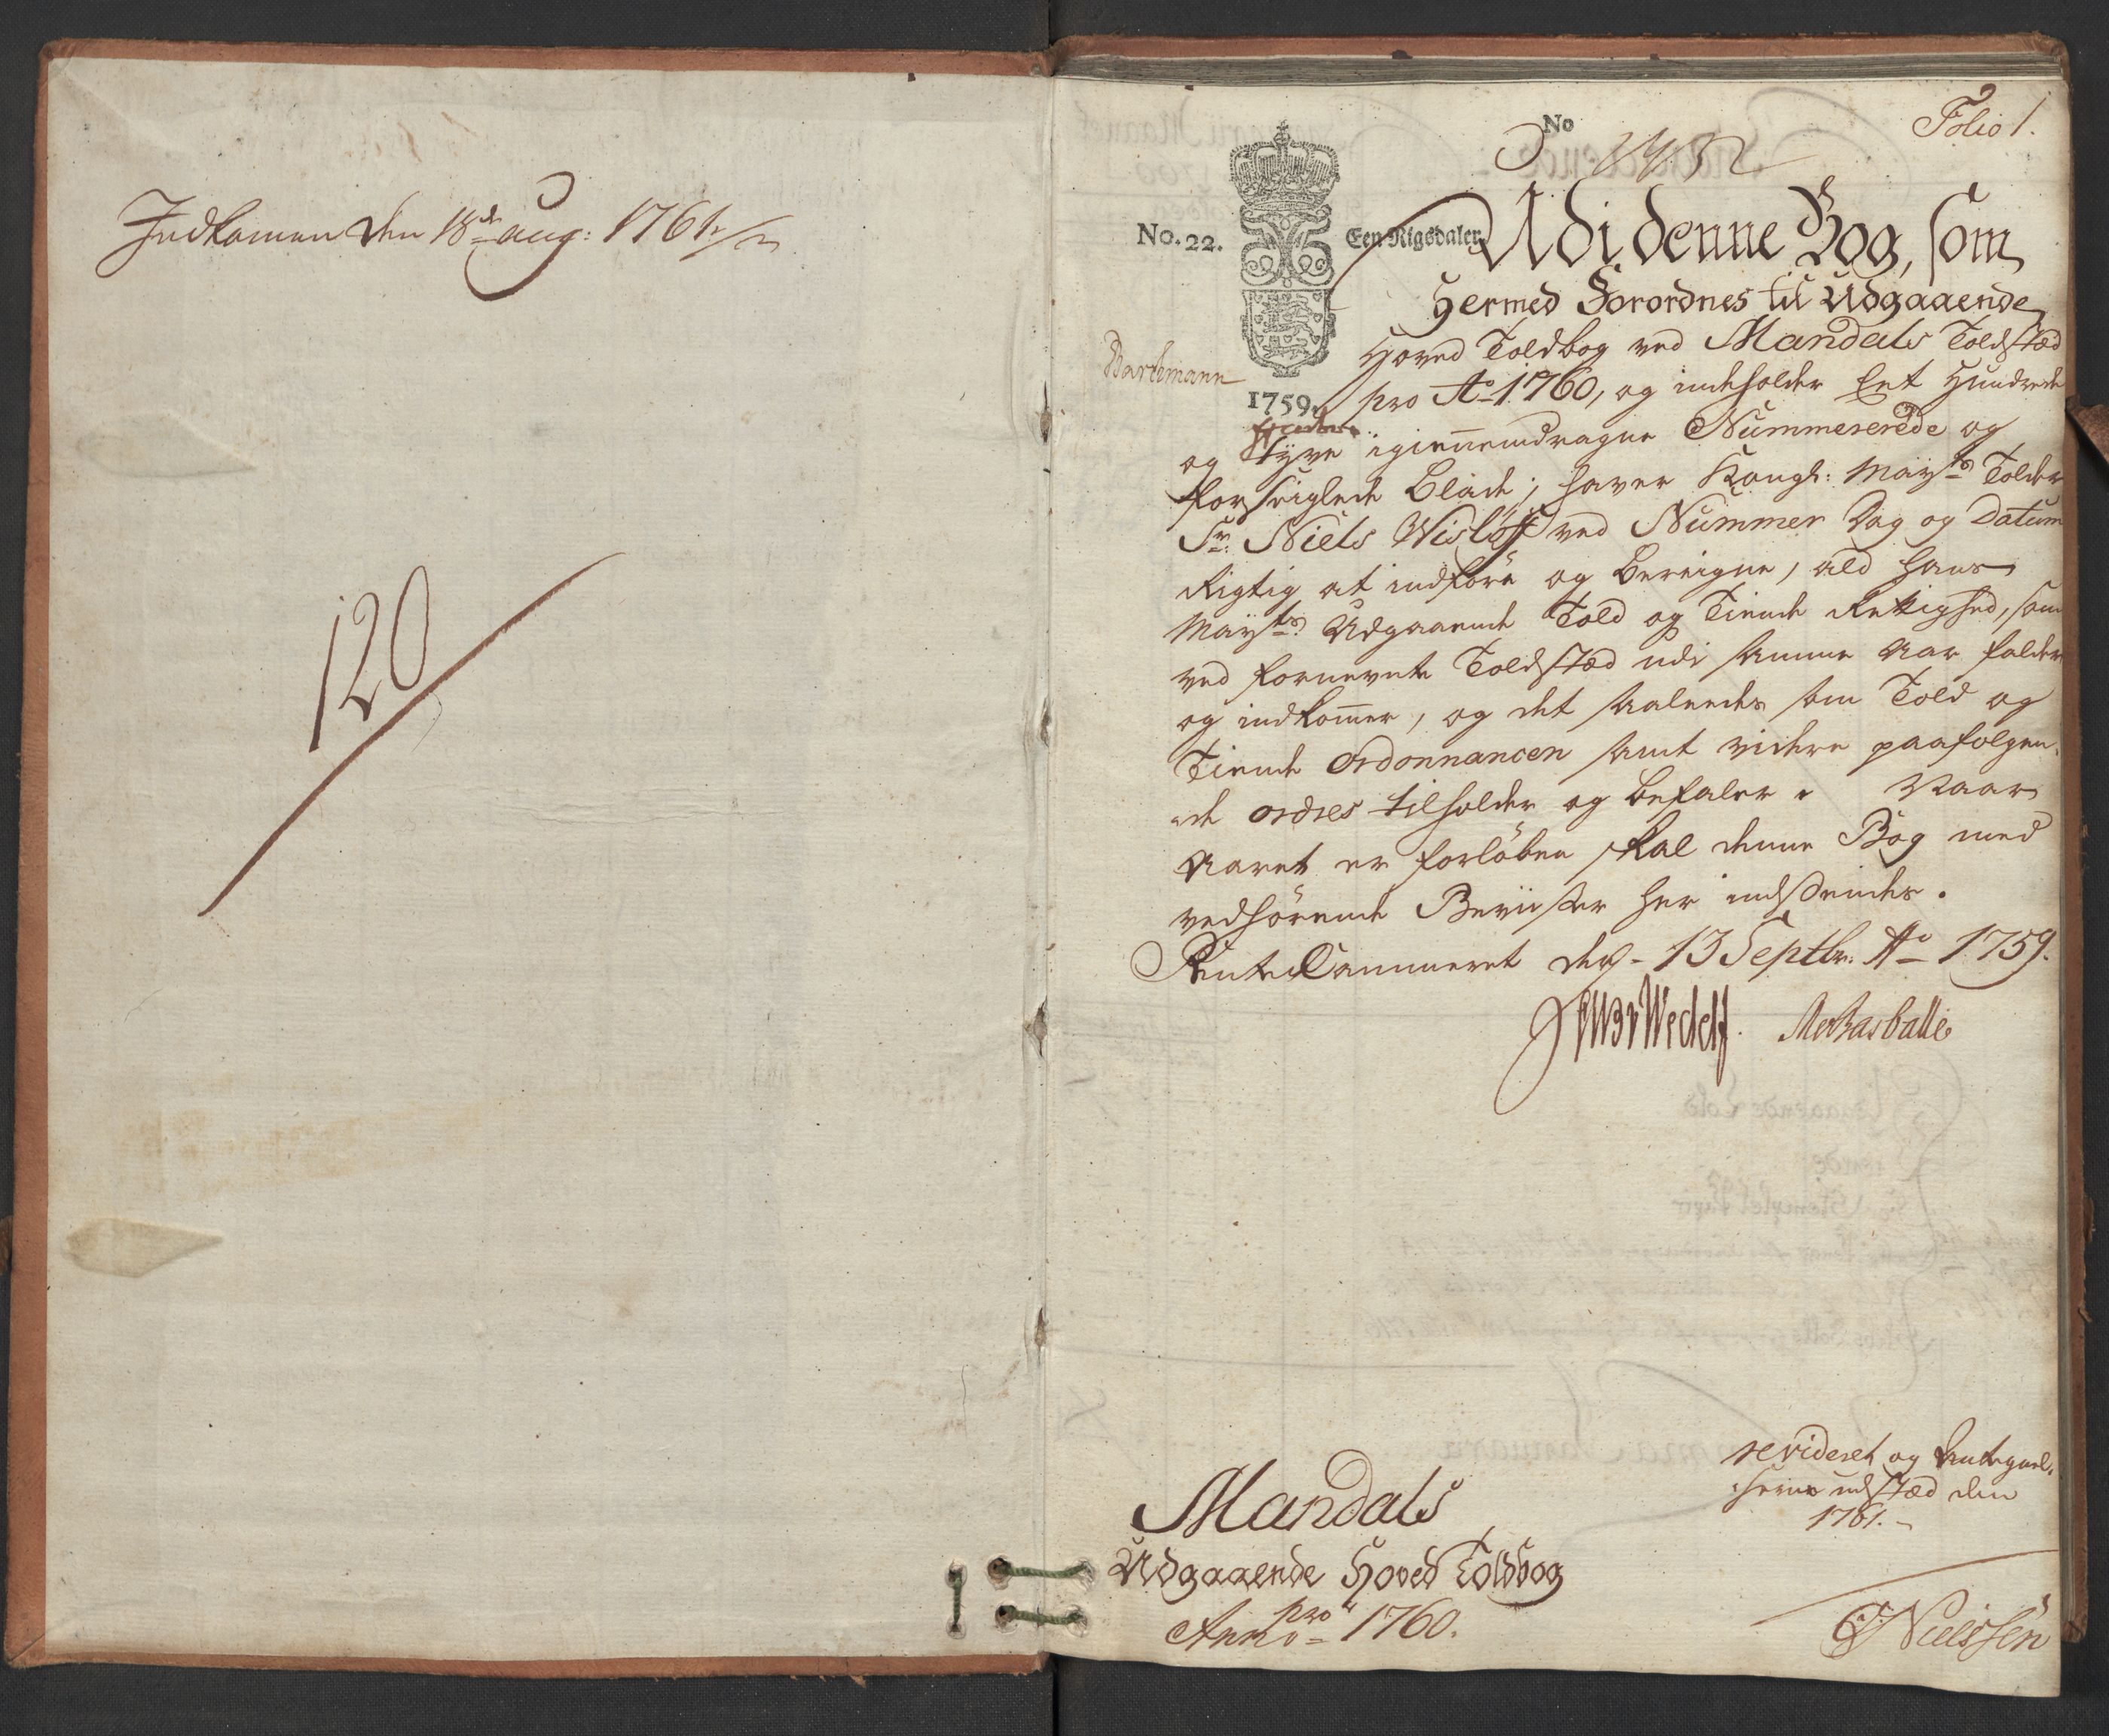 Indkommen den 18de aug: 1761.
120
Folio 1.
No
1452
No. 22.
Een Rigsdaler
Udi denne Bog, som
Hermed Forordnes til Udgaaende
Hoved Toldbog ved Mandals Toldsted
Bartemann
1759.
pro Ao 1760, og indeholder Eet Hundrede
og Tyve igiennemdragne Nummererede og
forseiglede Blade; haver Kongl: Mayts Tolder
Sr. Niels Wisløff ved Nummer Dag og Datum
Rigtig at indføre og Bereigne, ald hans
Mayts Udgaaende Told og Tiende Rettighed, som
ved fornevnte Toldsted udi samme Aar falder
og indkommer, og det saaledes som Told og
Tiende Ordonnancen samt videre paafølgen-
de ordres tilholder og befaler. Naar
Aaret er forløben skal denne Bog med
vedhørende Beviiser her indsendes.
Rente Cammeret den 13 Septbr: Ao 1759.
Mandals
Udgaaende Hoved Toldbog
pro
Anno 1760.
revideret og Antegnel-
serne udsted den
1761.
Nielssen